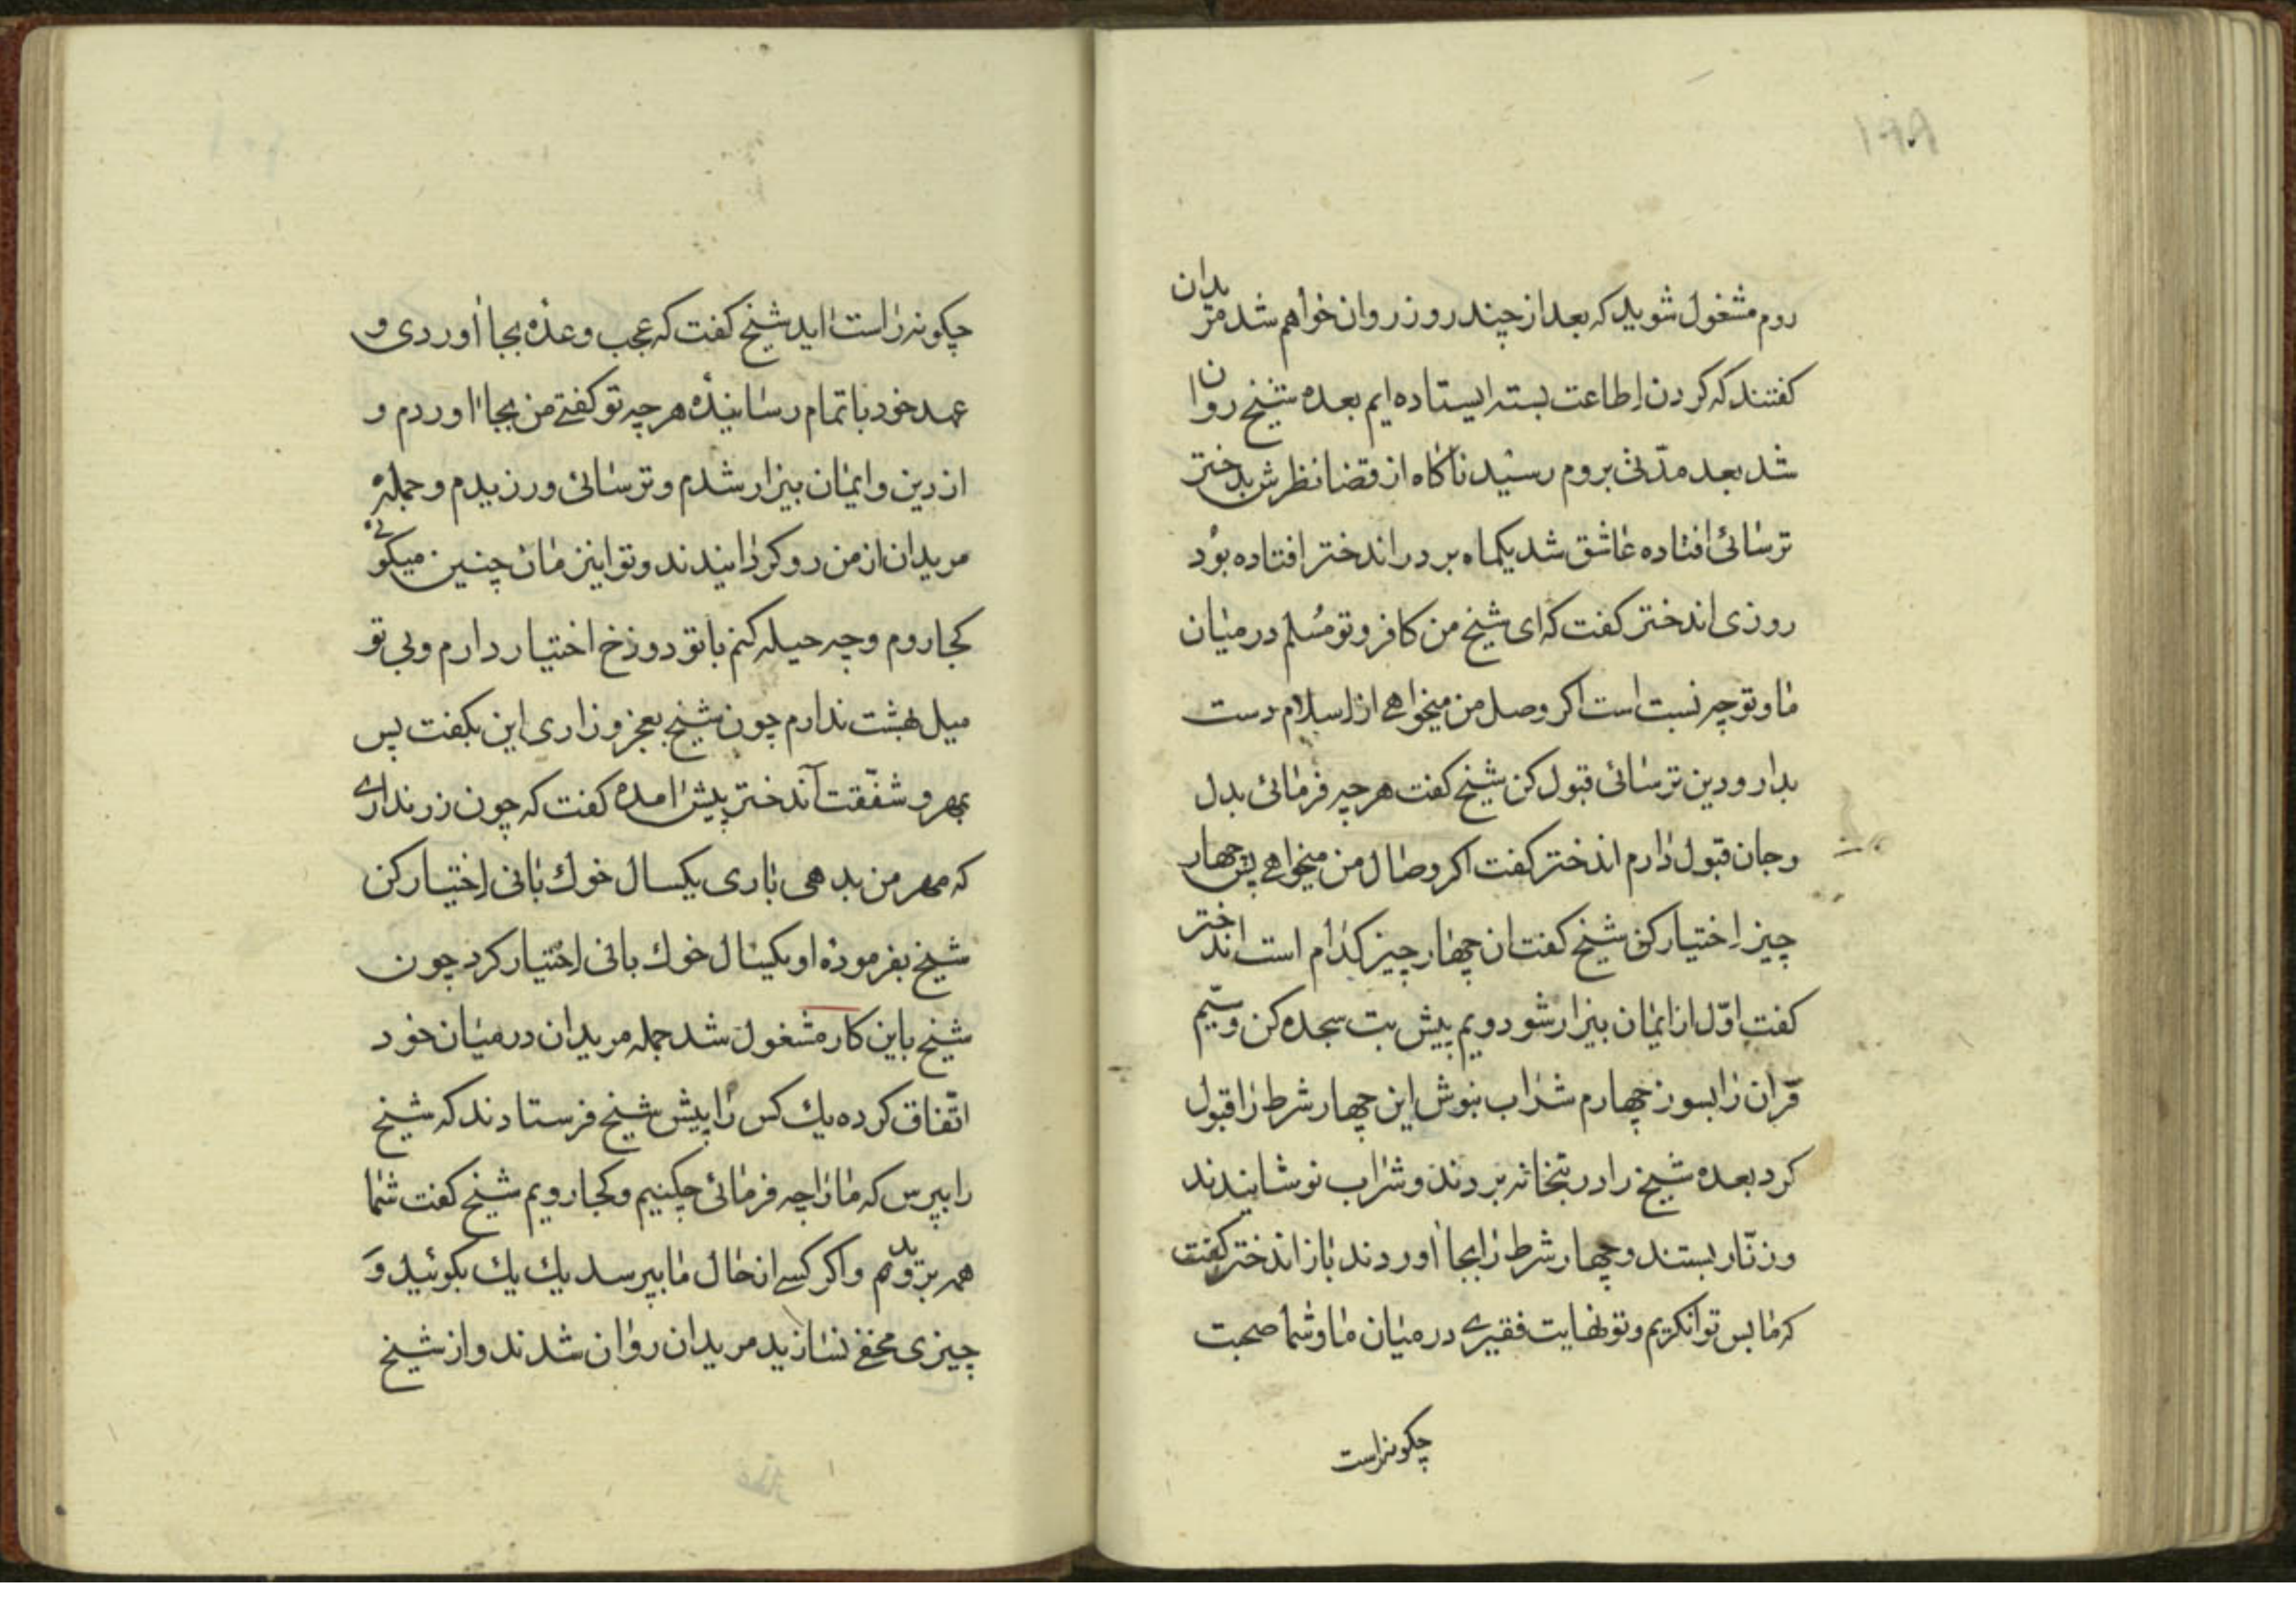 ۱۹۹
روم مشغول شوید که بعد از چند روز روان خواهم شد مریدان
کفتند که کردن اطاعت بسته ایستاده ایم بعده شیخ روان
شد بعد مدّتی بروم رسید ناکاه از قضا نظرش بدختر
ترسائی افتاده عاشق شد یکماه بر در اندختر افتاده بود
روزی اندختر کفت که ای شیخ من کافر و تو مسلم در میان
ما و تو چه نسبت است اکر وصل من میخواهی از اسلام دست
بدار و دین ترسائی قبول کن شیخ کفت هرچه فرمائی بدل
و جان قبول دارم اندختر کفت اکر وصال من میخواهی پس چهار
چیز اختیار کن شیخ کفت ان چهار چیز کدام است اندختر
کفت اوّل از ایمان بیزار شو دویم پیش بت سجده کن و سیّم
قرآن را بسوز چهارم شراب بنوش این چهار شرط را قبول
کرد بعده شیخ را در بتخانه بردند و شراب نوشانیدند
و زنّار بستند و چهار شرط را بجا أوردند باز اندختر کفت
که ما بس توانکریم و تو نهایت فقیری در میان ما و شما صحبت
چکونه راست
چکونه راست اید شیخ کفت که عجب وعده بجا أوردی و
عهد خود باتمام رسانیدۀ هرچه تو کفتی من بجا اوردم و
از دین و ایمان بیزار شدم و ترسائی ورزیدم و جملۀ
مریدان از من رو کردانیدند و تو اینزمان چنین میکوئی
کجا روم و چه حیله کنم با تو دوزخ اختیار دارم و بی تو
میل بهشت ندارم چون شیخ بعجز و زاری این بکفت پس
بمهر و شفّقت آندختر پیش امده کفت که چون زر نداری
که مهر من بدهی باری یکسال خوك بانی اختیار کن
شیخ بفرمودۀ او یکسال خوك بانی اختیار کرد چون
شیخ باین کار مشغول شد جمله مریدان در میان خود
اتّفاق کرده یك کس را پیش شیخ فرستادند که شیخ
را بپرس که ما را چه فرمائی چکنیم و کجا رویم شیخ کفت شما
همه بروید و اکر کسی از حال ما بپرسد یك یك بکوئید و
چیزی مخفی نسازید مریدان روان شدند و از شیخ